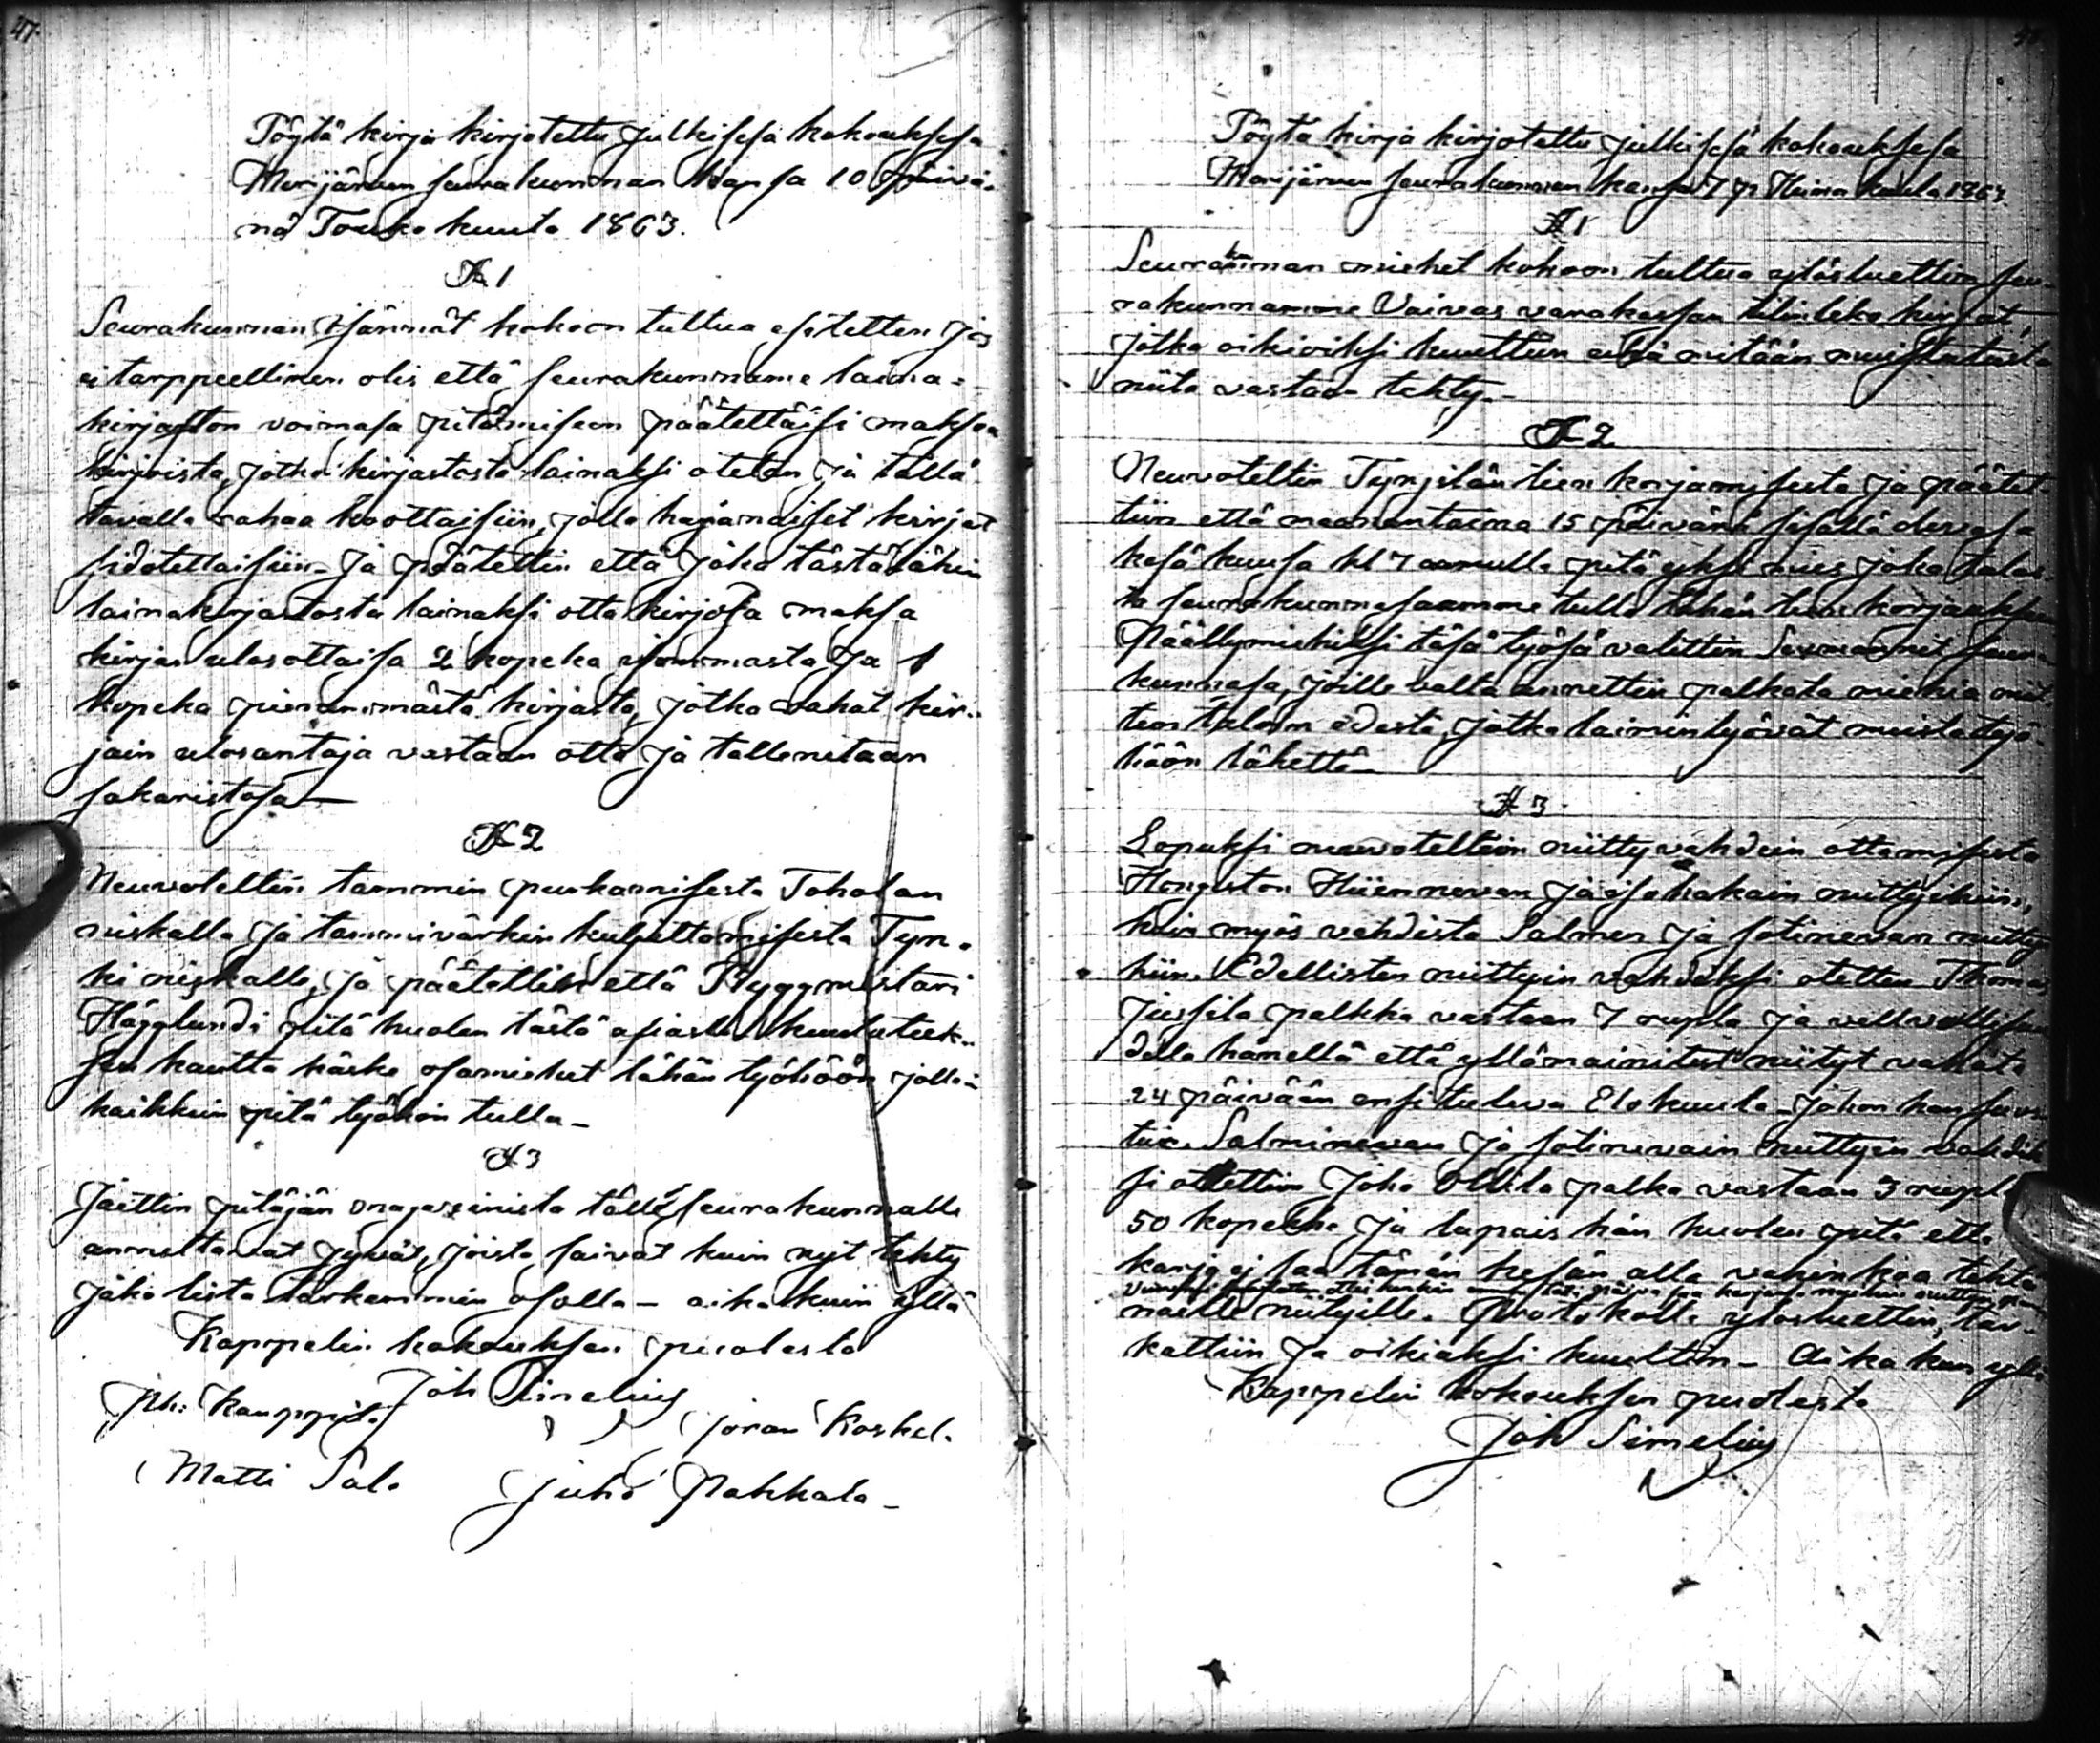 47.
Pöytä kirja kirjotettu julkisesa kokouksesa
Merijärven seurakunnan kansa 10 päivä-
nä Touko kuuta 1863.
§ 1
Seurakunnan isännät kokoon tultua esitettin jos
ei tarppeellinen olis että seurakunnamme laina-
kirjaston voimasa pitämiseen päätettäisi maksaa
kirjoista, jotka kirjastosta lainaksi otetan ja tällä
tavalla rahaa koottaisiin, jolla hajanaiset kirjat
sidotettaisiin. Ja päätettin että joka tästälähin
lainakirjastosta lainaksi otta kirjoja maksa
kirjan ulosottaisa 2 kopeka isommasta ja 1
kopeka pienemmästä kirjasta, jotka rahat kir-
jain ulosantaja vastaan otta ja talletetaan
sakaristosa —
§ 2
Neuvoteltin tammin purkamisesta Toholan
niskalla ja tammivärkin kuljettamisesta Tyn-
ki niskalle, ja päätettiin että Byggmestari
Hägglundi pitä huolen tästä asiasta kuulutuk-
sen kautta käske osamiehet tähän työhöön jolloin
kaikkein pitä työhön tulla —
§ 3
Jaettin pitäjän magasinista tälle seurakunnalle
annettavat jyvät, joista saivat kuin nyt tehty
jako lista tarkemmin osotta — aika kuin yllä
Kappelin kokouksen puolesta
Joh Simelius
Joh: Kauppila
Joran Koskel.
Matti Salo Juho Pahkala —
Pöytä kirja kirjotettu julkisesa kokouksesa
Merijärven seurakunnan kansa 7 p. Heinä kuuta 1863.
§ 1
Seurakunnan miehet kokoon tultua ylösluettiin seu-
rakunnamme Vaivas varakassan tilinteko kirjat,
jotka oikioiksi kuuttiin eikä mitään muistutusta
niitä vastaan tehty. —
§ 2
Neuvoteltin Tynjilän tien korjamisesta ja päätet-
tiin että maanantaina 15 päivänä sisällä olevasa
kesä kuusa kl 7 aamulla pitä yksi mies joka talos-
ta seurakunnasamme tulla tähän tien korjaukseen
Päällysmiehiksi täsä työsä valittin Sexmannit seura-
kunnasa, joille valta annettiin palkata miehiä niit-
ten taloin edestä, jotka laiminlyövät miestä työ-
höön lähettä —
§ 3
Lopuksi neuvoteltiin niitty vahdein ottamisesta
Hongiston Hiiennevan ja isohakain niittyihiin,
kuin myös vahdista Salmen ja sotinevan niitty-
hiin. Edellisten niittyin vahdiksi otettin Thomas
Jussila palkka vastaan 7 rupla ja velvollisuu-
della hänellä että yllämainitut niityt vahdata
24 päivään ensituleva Elokuuta. Johon han suos-
tui. Salminevan ja sotinevain niittyin vahdik-
si otettiin Joho Ollila palka vastaan 3 rupla
50 kopekka ja lupais hän huolen pitä että
karja ej saa tämän kesän alla vahinkoa tehdä
naille niityille. Protokolla ylosluettiin, tar-
kattiin ja oikiaksi kuultiin — Aika kun yllä
Kappelin kokouksen puolesta
Joh Simelius